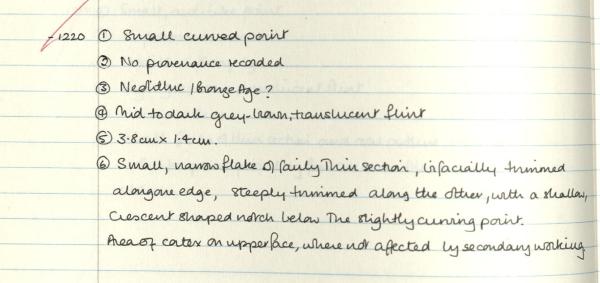 - 1220 ① Small curved point
② No provenance recorded
③ Neolithic / Bronze Age ?
④ Mid to dark grey-brown, translucent flint
⑤ 3.8cm x 1.4cm.
⑥ Small, narrow flake of fairly thin section, bifacially trimmed
along one edge, steeply trimmed along the other, with a shallow,
crescent shaped notch below the slightly curving point.
Area of cortex on upper face, where not affected by secondary working